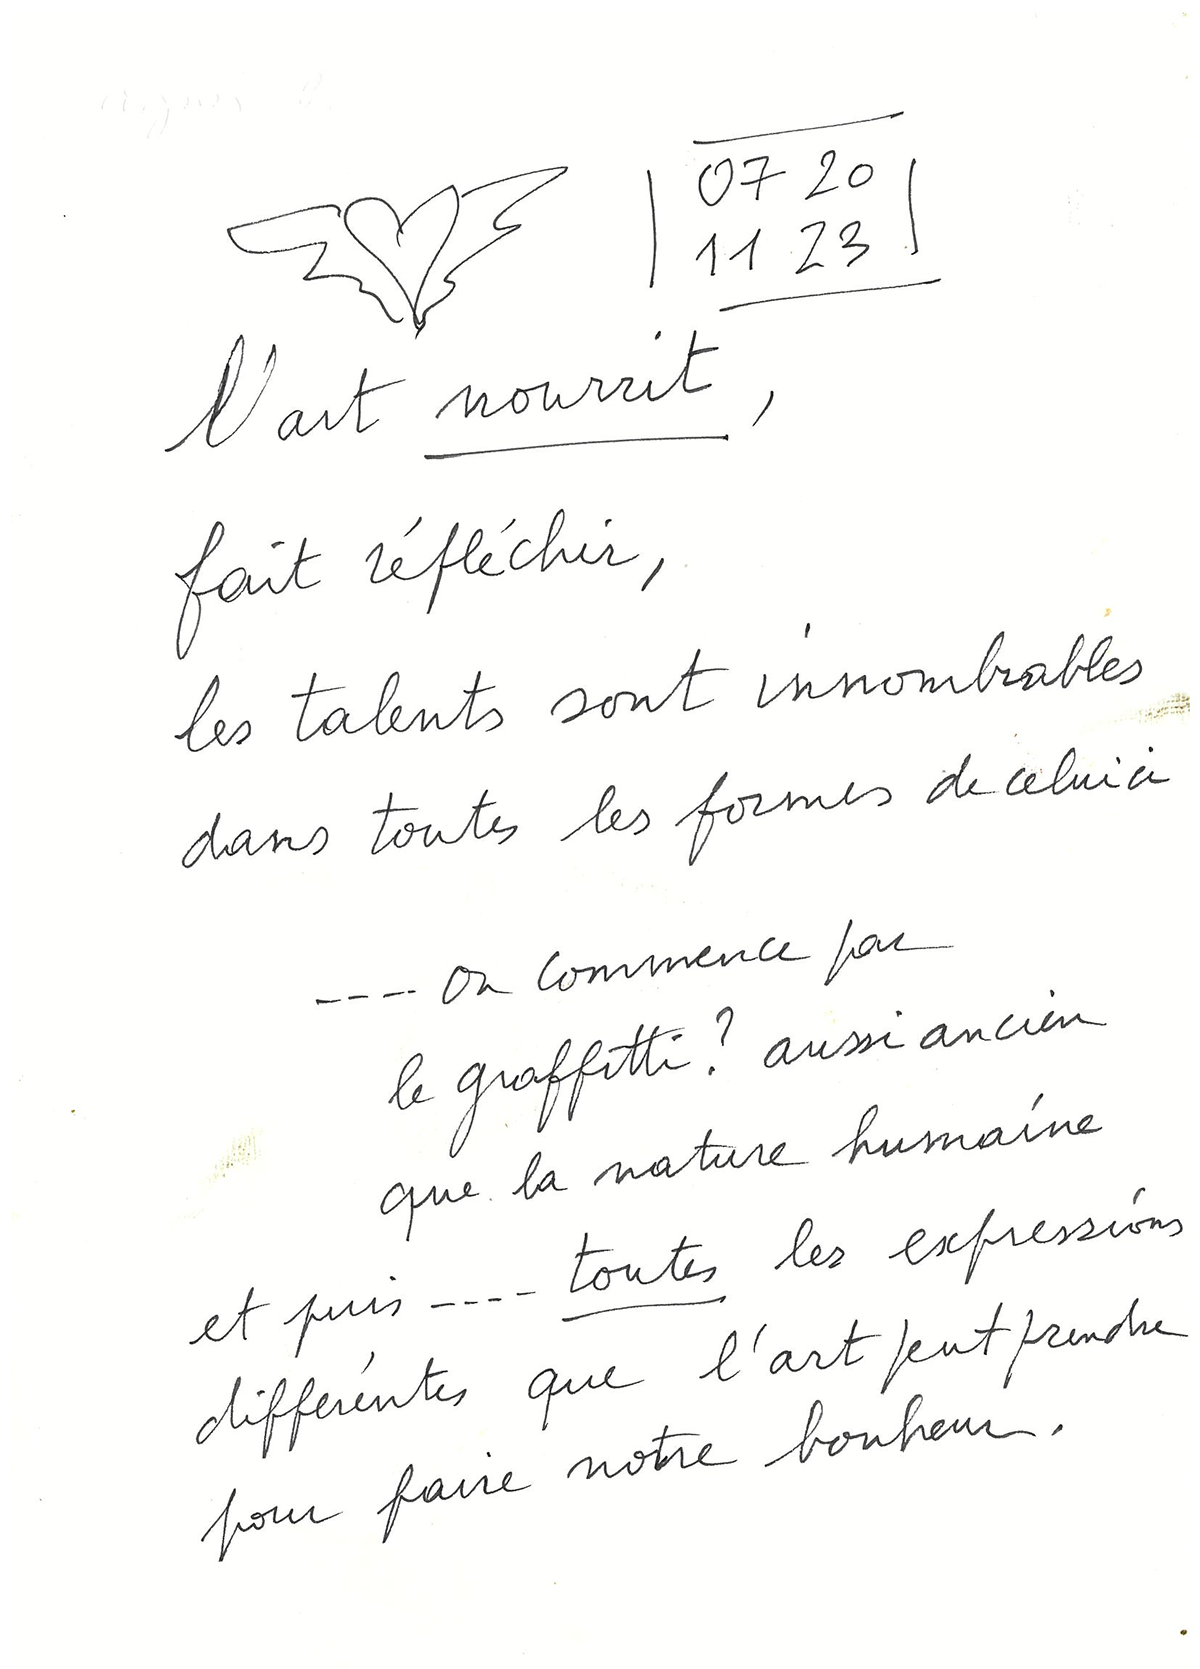 07 20
11 23
l'art nourrit,
fait réfléchir,
les talents sont innombrables
dans toutes les formes de celui ci
---- on commence par
le graffitti ? aussi ancien
que la nature humaine
et puis ---- toutes les expressions
différentes que l'art peut prendre
pour faire notre bonheur.